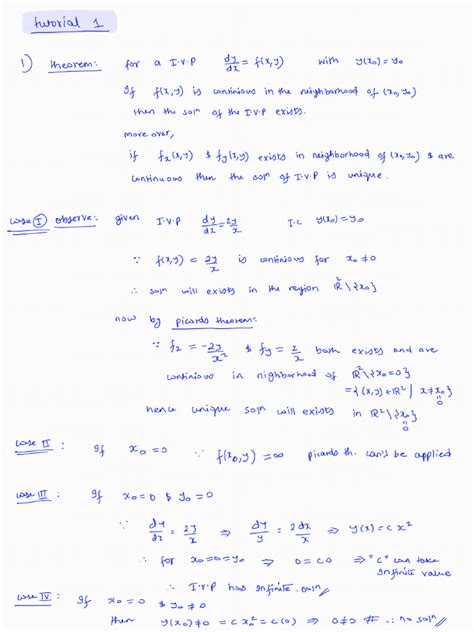 tutorial 1
1) theorem: for a I.V.P dy/dx = f(x,y) with y(x₀) = y₀
If f(x,y) is continious in the neighborhood of (x₀,y₀)
then the solⁿ of the I.V.P exists.
more over,
if fₓ(x,y) & f_y(x,y) exists in neighborhood of (x₀,y₀) & are
continuous then the solⁿ of I.V.P is unique.
case I observe: given I.V.P dy/dx = 2y/x I.C y(x₀) = y₀
∵ f(x,y) = 2y/x is continious for x₀ ≠ 0
∴ solⁿ will exists in the region ℝ² \ {x₀}
now by picards theorem:
∵ fₓ = -2y/x² & f_y = 2/x both exists and are
continious in nighborhood of ℝ² \ {x₀=0}
= {(x,y) ∈ ℝ² | x ≠ x₀}
= 0
hence unique solⁿ will exists in ℝ² \ {x₀}
= 0
case II : If x₀ = 0 ∵ f(x₀,y) = ∞ picards th. can't be applied
case III : If x₀ = 0 & y₀ = 0
∵ dy/dx = 2y/x ⇒ dy/y = 2dx/x ⇒ y(x) = c x²
∴ for x₀ = 0 = y₀ ⇒ 0 = c0 ⇒ "c" can take
infinite value
∴ I.V.P has infinite solⁿ
case IV : If x₀ = 0 & y₀ ≠ 0
then y(x₀) ≠ 0 = c x₀² = c(0) ⇒ 0 ≠ 0 ∴ no solⁿ